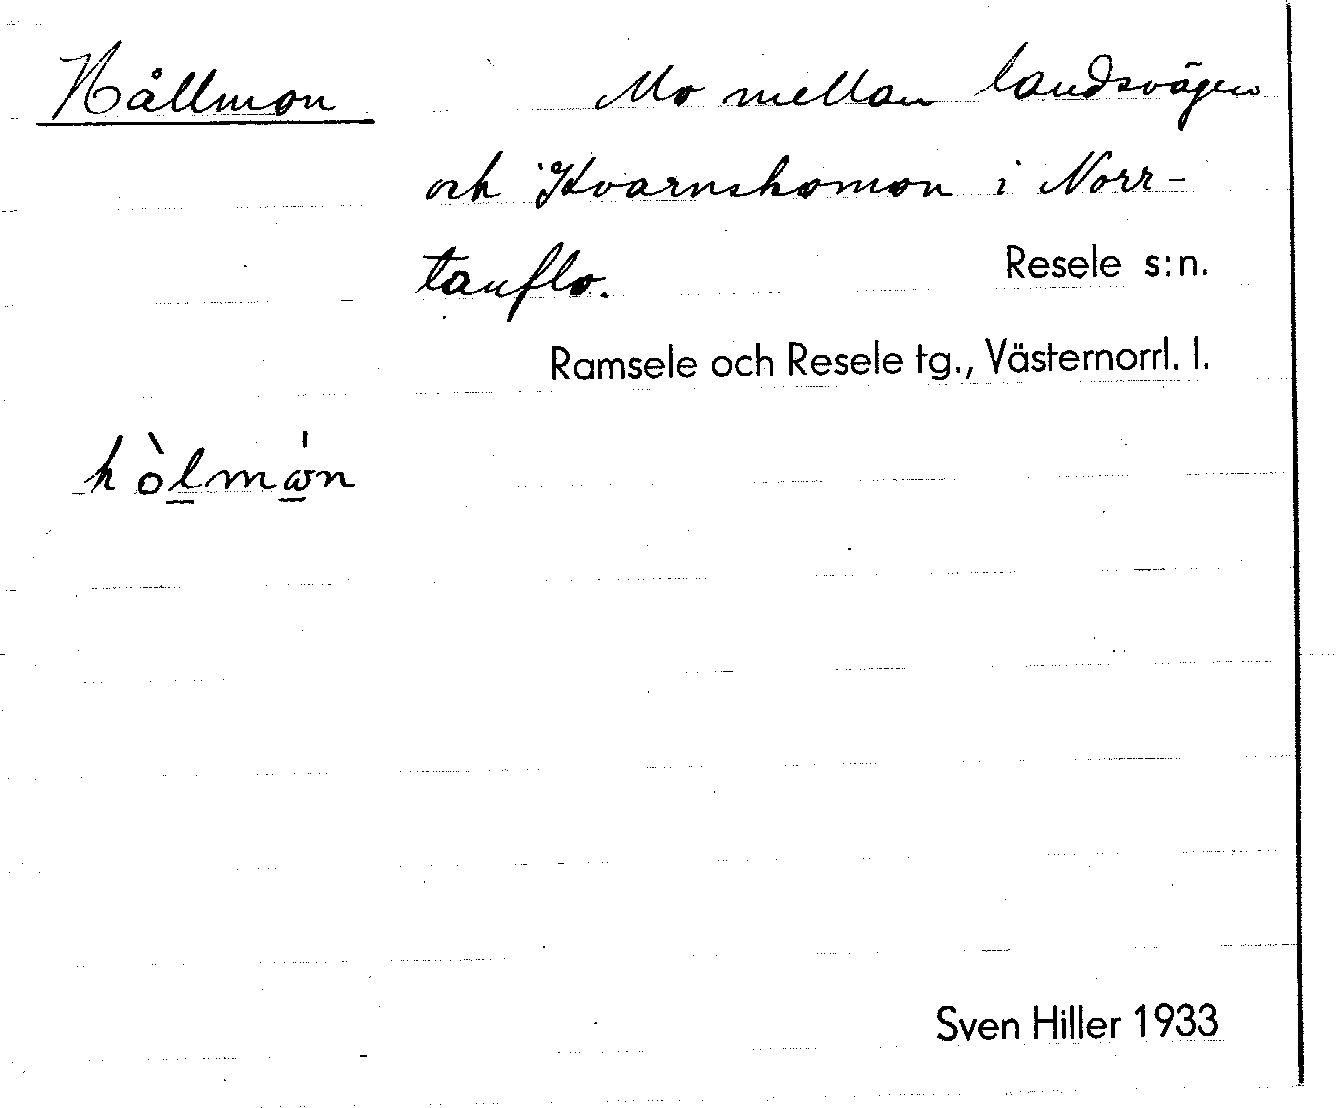 Hållmon Mo mellan landsvägen
och Kvarnskomon i Norr-
tanflo.
Resele s:n.
Ramsele och Resele tg., Västernorrl. l.
Sven Hiller 1933